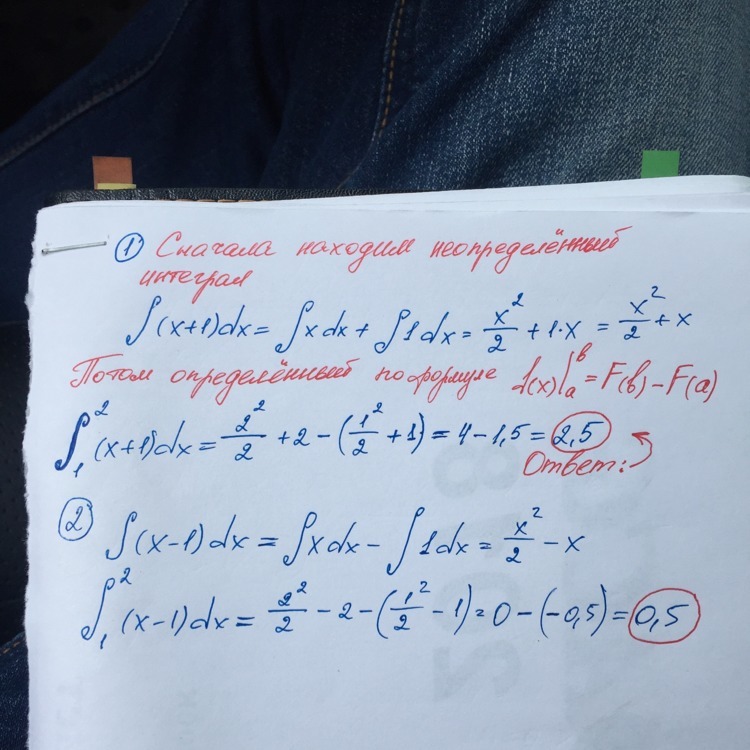 ① Сначала находим неопределённый
интеграл
∫(x+1)dx = ∫xdx + ∫1dx = x²/2 + 1·x = x²/2 + x
Потом определённый по формуле f(x)|ₐᵇ = F(b) – F(a)
∫₁² (x+1)dx = 2²/2 + 2 – (1²/2 + 1) = 4 – 1,5 = 2,5
Ответ:
② ∫(x–1)dx = ∫xdx – ∫1dx = x²/2 – x
∫₁² (x–1)dx = 2²/2 – 2 – (1²/2 – 1) = 0 – (–0,5) = 0,5